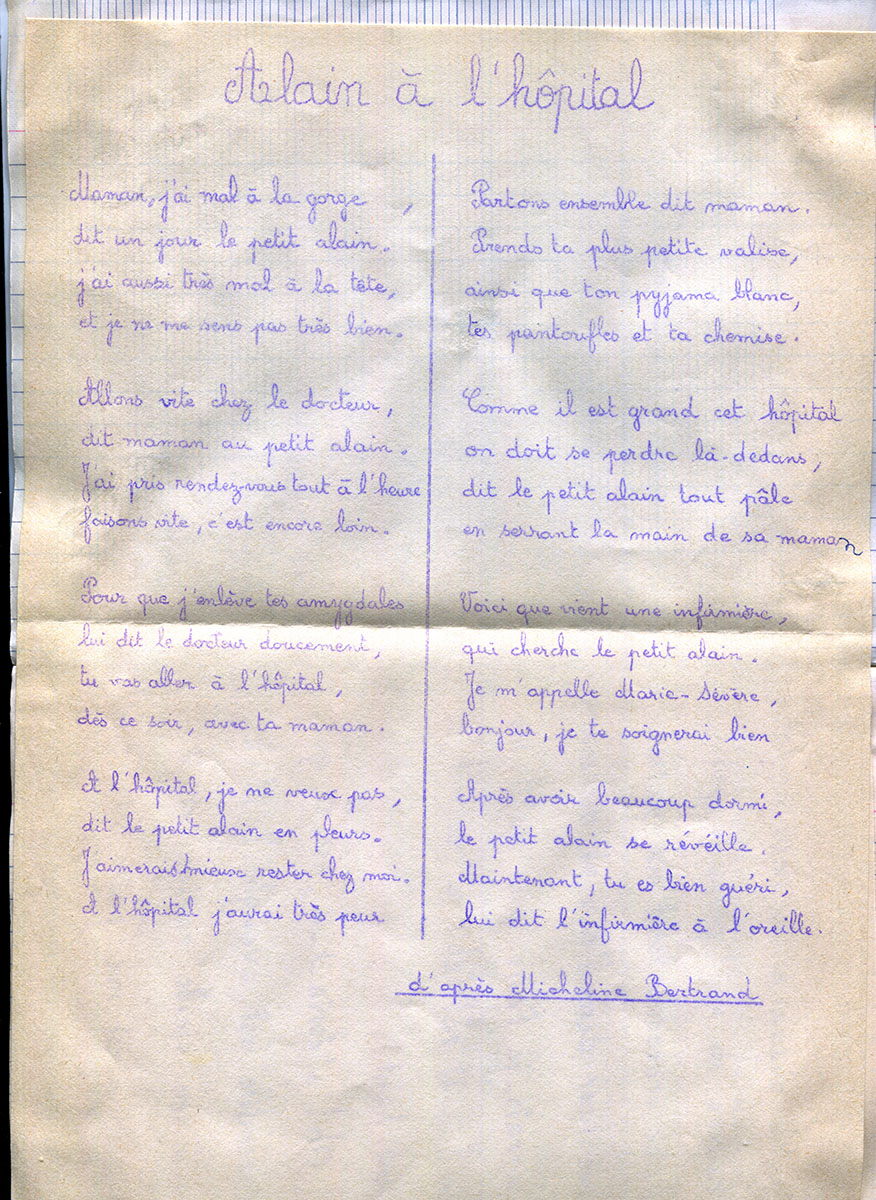 Alain à l'hôpital
Maman, j'ai mal à la gorge,
dit un jour le petit alain.
j'ai aussi très mal à la tête,
et je ne me sens pas très bien.
Allons vite chez le docteur,
dit maman au petit alain.
J'ai pris rendez-vous tout à l'heure
faisons vite, c'est encore loin.
Pour que j'enlève tes amygdales
lui dit le docteur doucement,
tu vas aller à l'hôpital,
dès ce soir, avec ta maman.
A l'hôpital, je ne veux pas,
dit le petit alain en pleurs.
J'aimerais mieux rester chez moi.
A l'hôpital j'aurai très peur
Partons ensemble dit maman.
Prends ta plus petite valise,
ainsi que ton pyjama blanc,
tes pantoufles et ta chemise.
Comme il est grand cet hôpital
on doit se perdre là-dedans,
dit le petit alain tout pâle
en serrant la main de sa maman
Voici que vient une infirmière,
qui cherche le petit alain.
Je m'appelle Marie-Sévère,
bonjour, je te soignerai bien
Après avoir beaucoup dormi,
le petit alain se révéille.
Maintenant, tu es bien guéri,
lui dit l'infirmière à l'oreille.
d'après Micheline Bertrand